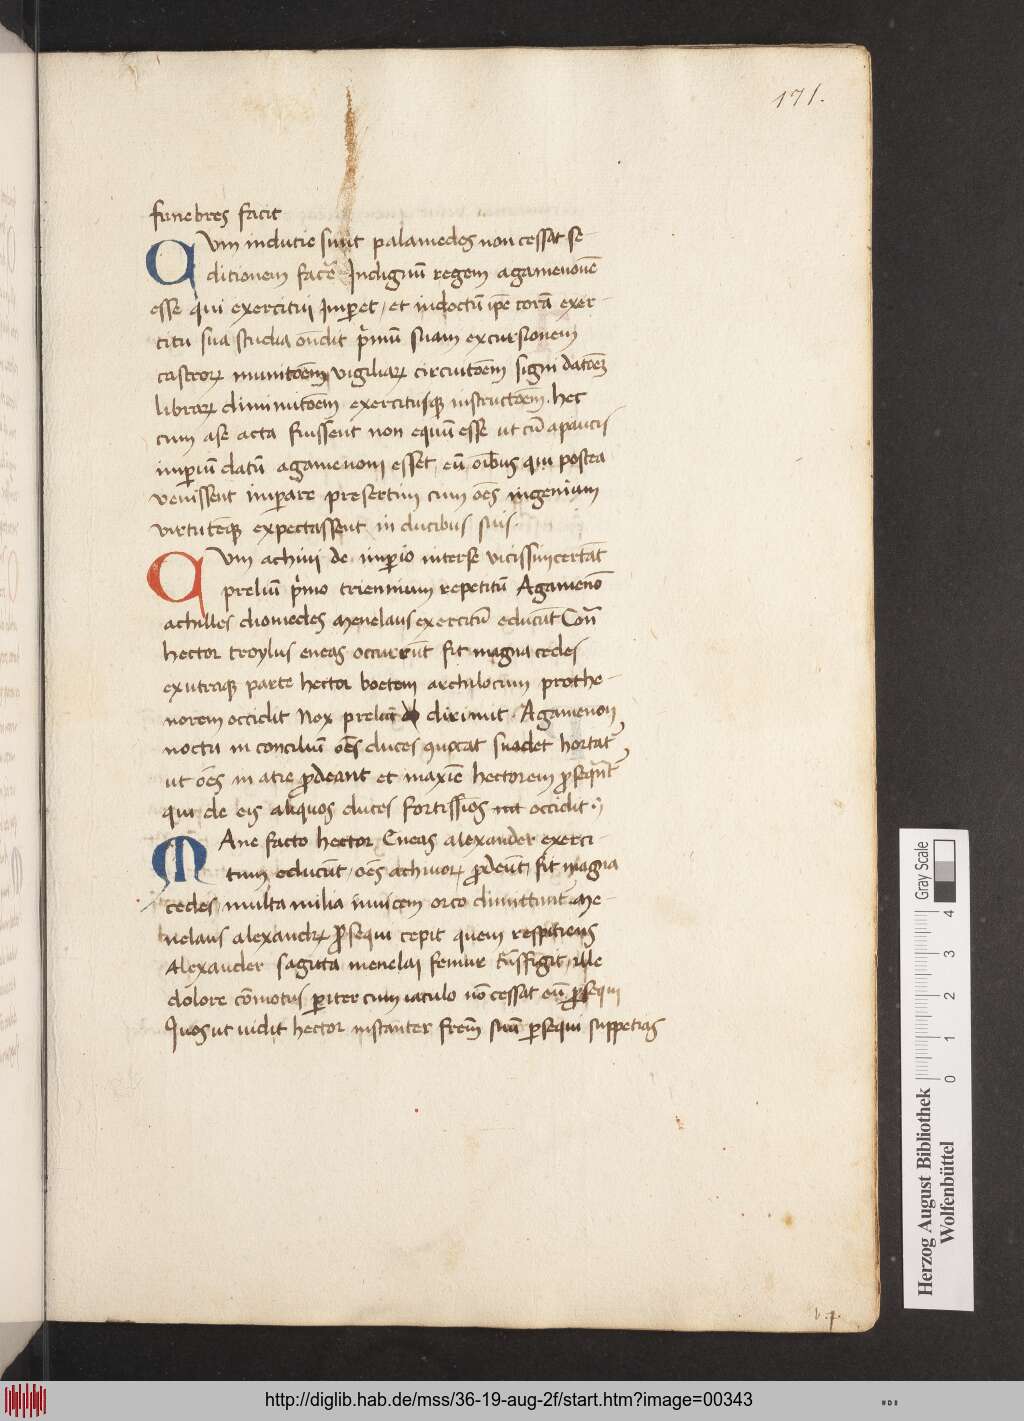 171.
funebres facit
Qvm indutie sunt palamedes non cessat se-
ditionem facẽ Indignũ regem agamenonẽ
esse qui exercitui Imperet / et indoctũ ipẽ corã exer-
citu sua studia oñdit p̃mũ suam excursionem
castrorꝝ munitõem vigiliarꝝ circuitõem signi datõem
librarꝝ diminutõem exercitusqꝫ instructõem. hec
cum ase acta fuissent non equũ esse ut cũ apaucis
imꝑiũ datũ agamenoni esset eũ oĩbus qui postea
venissent imꝑare presertim cum oẽs ingenium
virtutẽqꝫ expectassent in ducibus suis.
Cvm achiui de imꝑio interse vicissim certãt
preliũ p̃mo triennium repetitũ Agamenõ
achilles diomedes menelaus exercitũ educũt Con̄
hector troylus eneas occurrũt fit magna cedes
exutraqꝫ parte hector boetem archilocum prothe-
norem occidit Nox preliũ dirimit. Agamenon
noctu in conciliũ oẽs duces quocat suadet hortat̃
ut oẽs in aciẽ ꝓdeant et maxiẽ hectorem ꝓseqñt̃
qui de eis aliquos duces fortissiõs occidit
MAne facto hector Eneas alexander exerci-
tum educũt / oẽs achiuorꝝ ꝓdeũt / fit magna
cedes multa milia inuicem orco dimittunt̃ me-
nelaus alexandrꝝ ꝑsequi cepit quem respitiens
Alexander sagitta menelai femur trãsfigit / ille
dolore cõmotus ꝑiter cum iaculo nõ cessat eũ ꝑsequi
Quos ut uidit hector instanter frẽm suũ ꝑsequi suppetias
Gray Scale
0 1 2 3 4
Herzog August Bibliothek
Wolfenbüttel
http://diglib.hab.de/mss/36-19-aug-2f/start.htm?image=00343